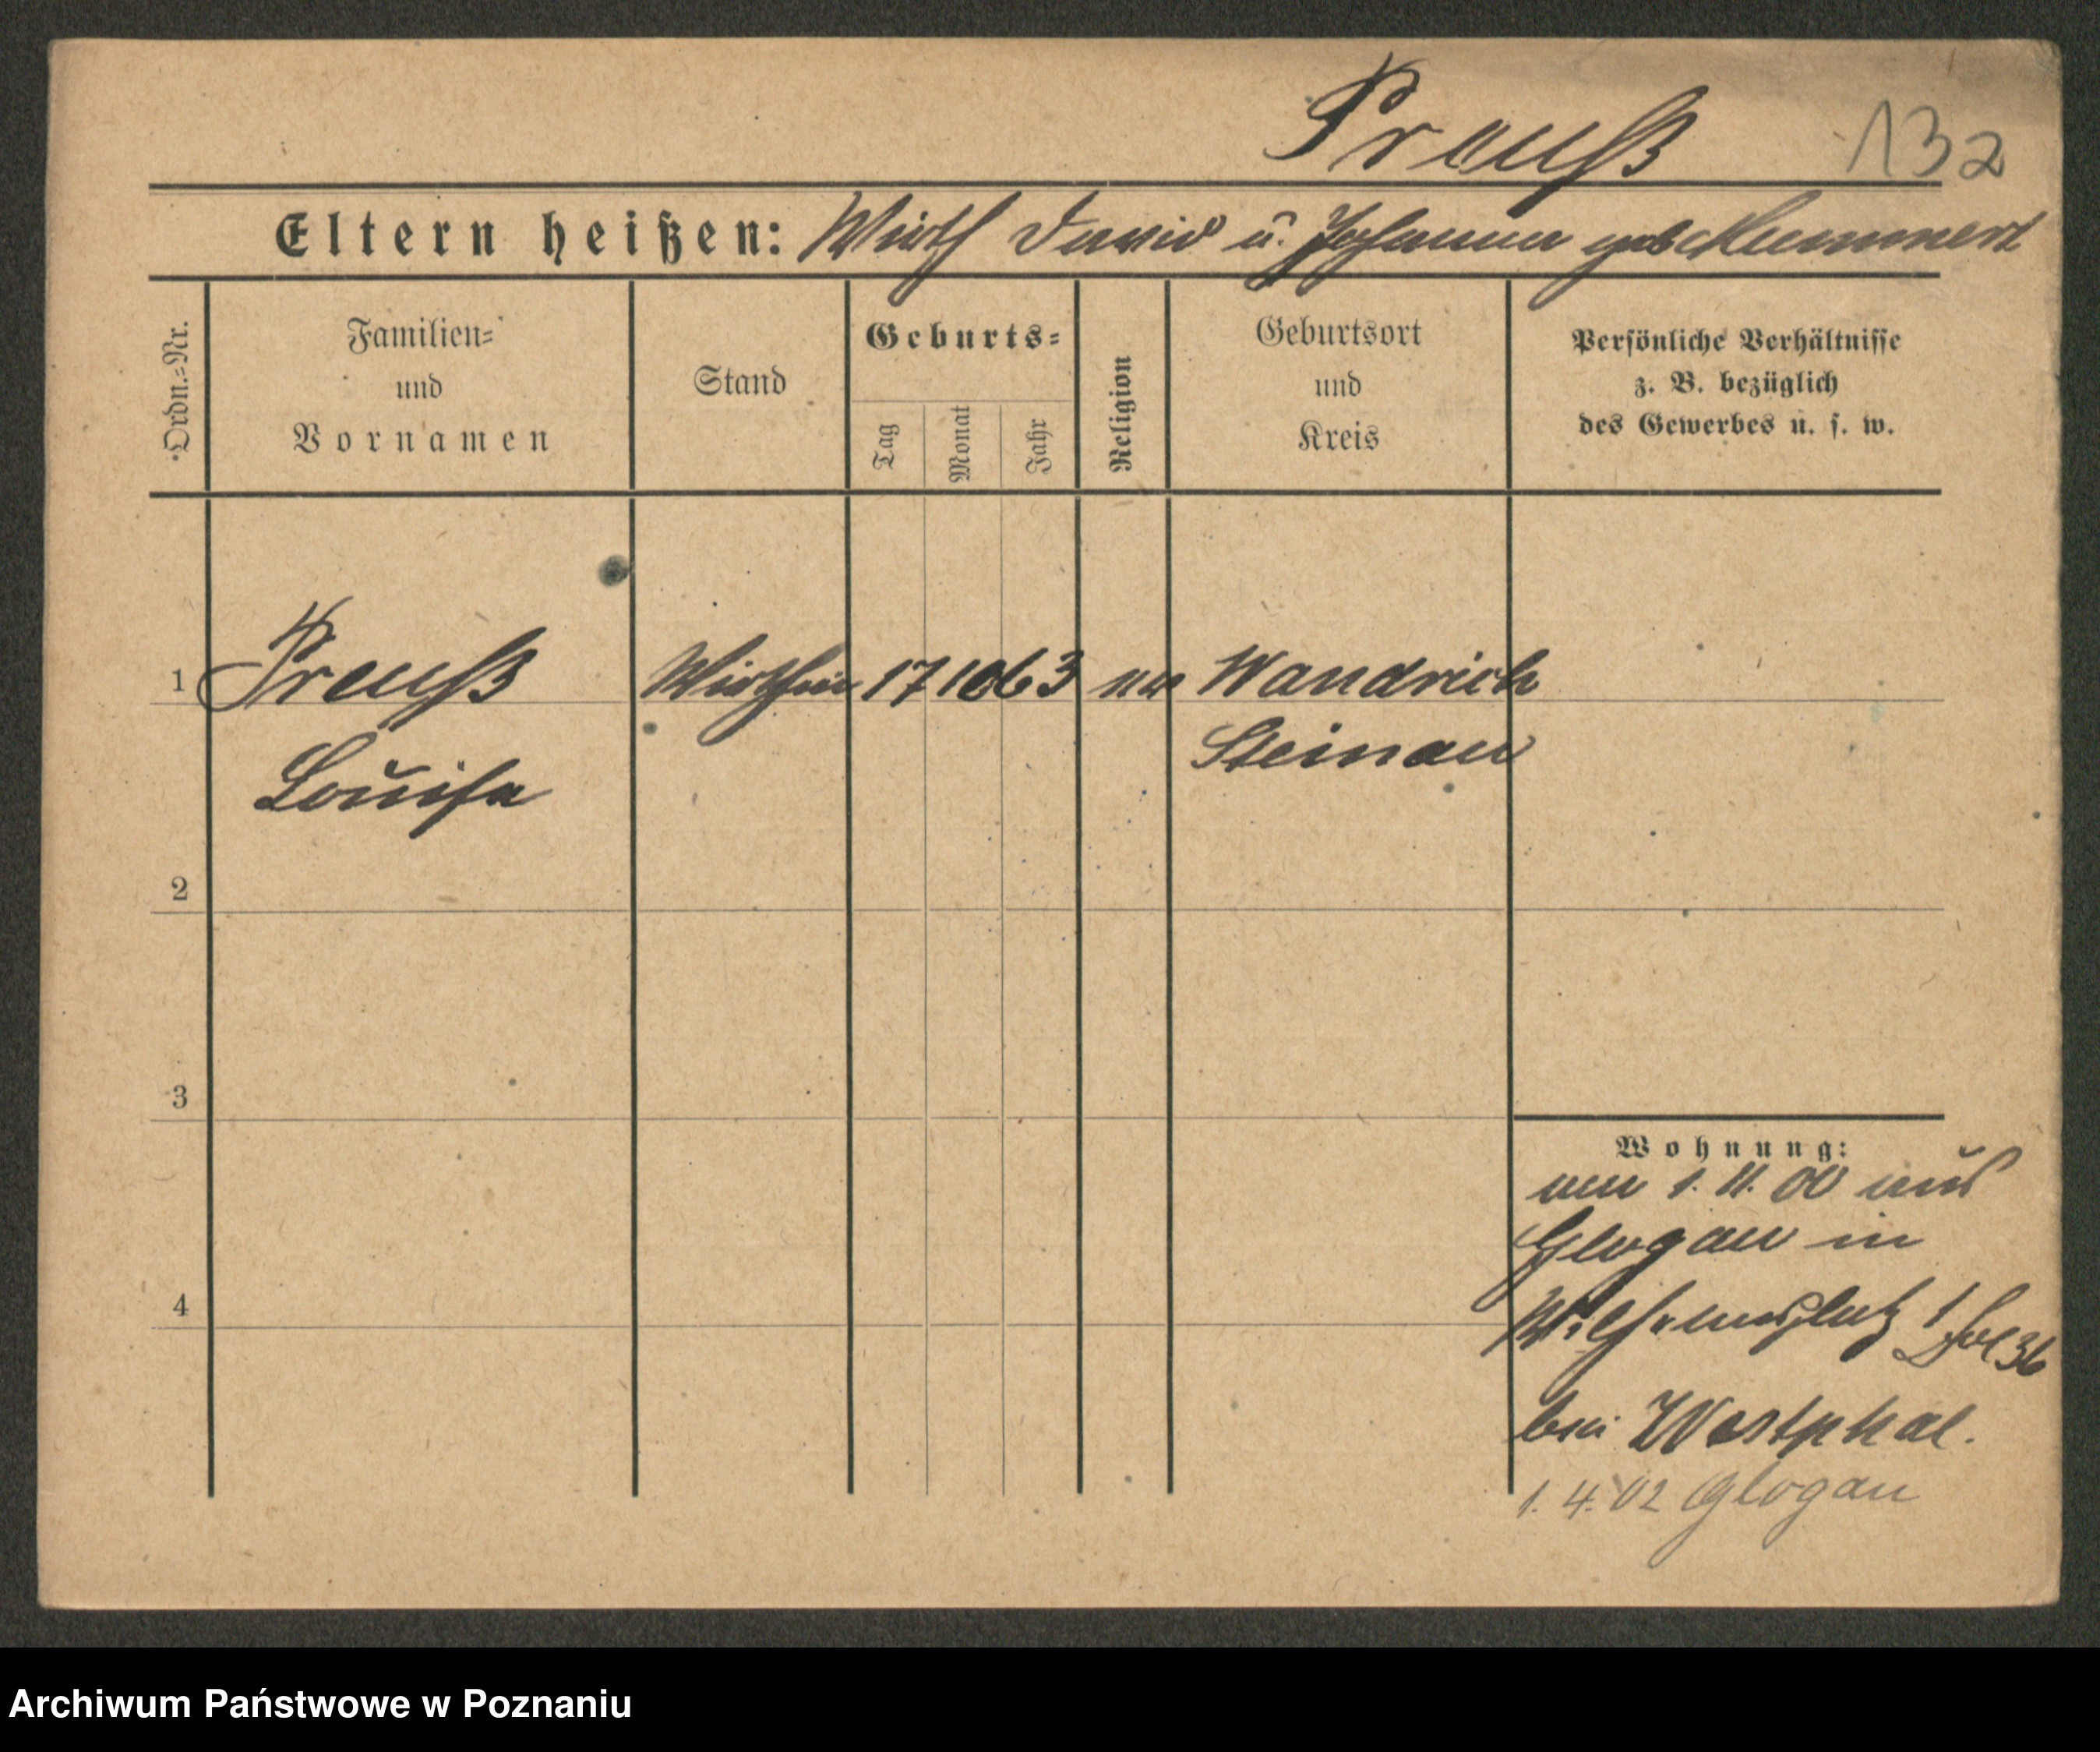 Preuß 132
Eltern heißen: Wirth David u. Johanna geb Kummert
Ordn.=Nr.
Familien=
und
Vornamen
Stand
Geburts=
Tag
Monat
Jahr
Religion
Geburtsort
und
Kreis
Persönliche Verhältnisse
z. B. bezüglich
des Gewerbes u. s. w.
1 Preuß Wirthin 17 10 63 Wandrich
Louise Steinau
2
3
4
Wohnung:
am 1. 11. 00 aus
Glogau in
Wilhelmsplatz 1
bei Westphal.
1. 4. 02 Glogau
Archiwum Państwowe w Poznaniu